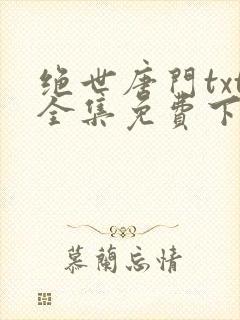 绝世唐門txt
全集免費下
慕蘭忘情